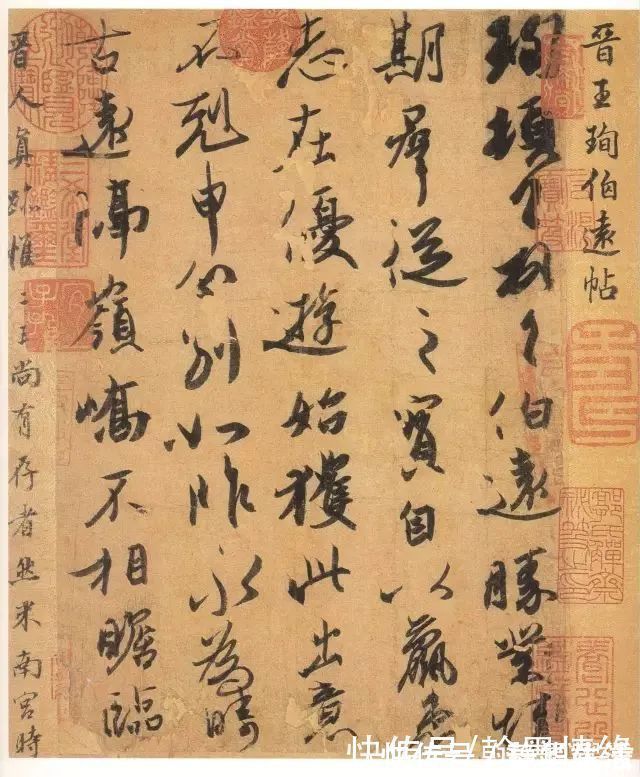 晉王珣伯遠帖
珣頓首頓首伯遠勝業情
期羣從之寶自以羸患
志在優遊始獲此出意
不剋申分別如昨永為疇
古遠隔嶺嶠不相瞻臨
晉人真跡惟二王尚有存者然米南宮時
快传号/翰墨情緣